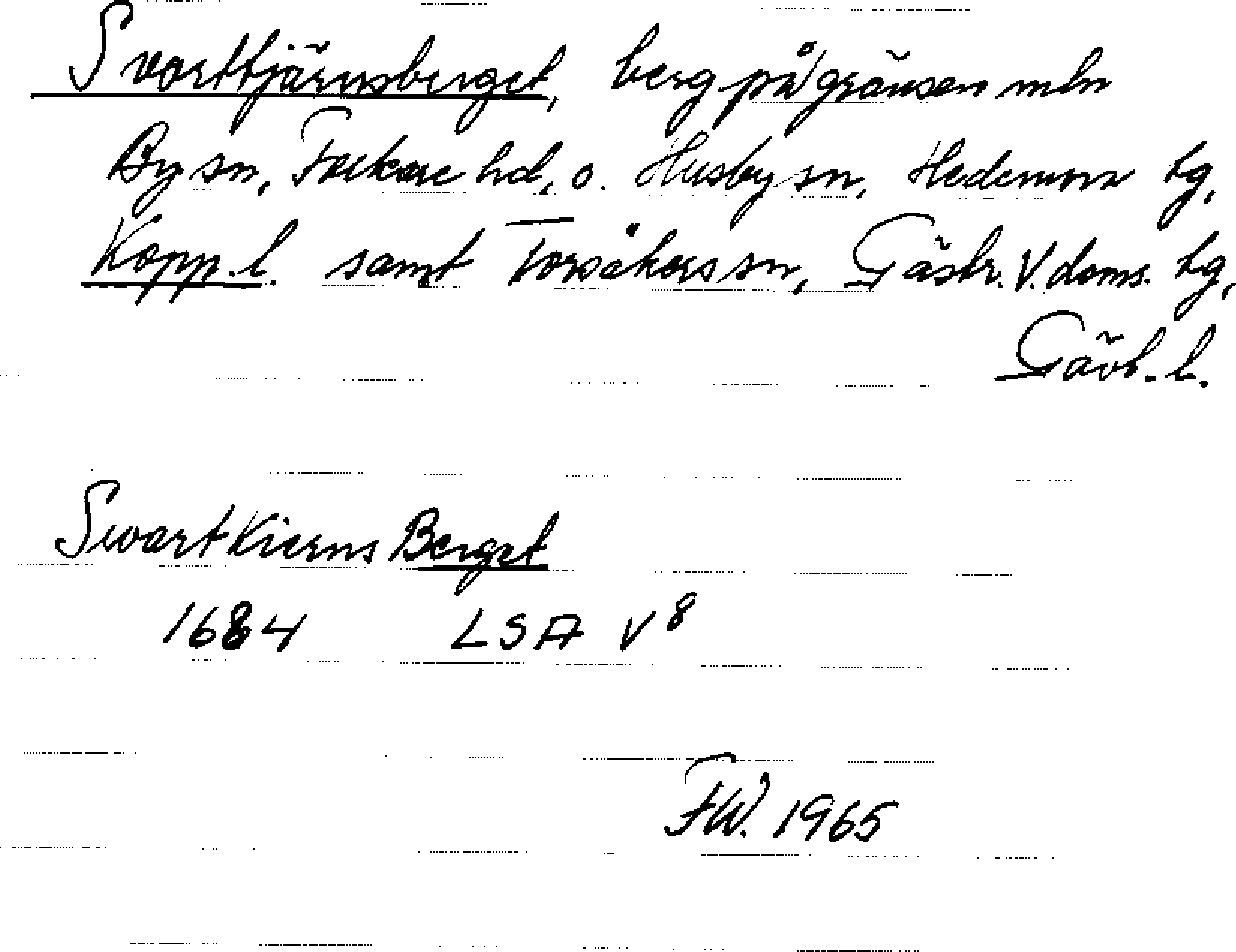 Svarttjärnsberget, berg på gränsen mln
By sn, Folkare hd, o. Husby sn, Hedemora tg,
Kopp. l. samt Torsåkers sn, Gästr. V. doms. tg,
Gävl. l.
Swart Kierns Berget
1684 LSA V8
FW. 1965